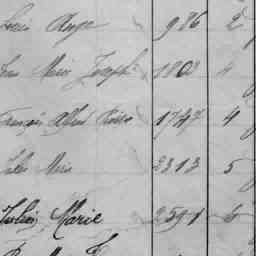 Louis Ange 986 2
Jean Marie Joseph 1802 4
François Alfred 1747 4
Jules Marie 2313 5
Julien Marie 2591 6